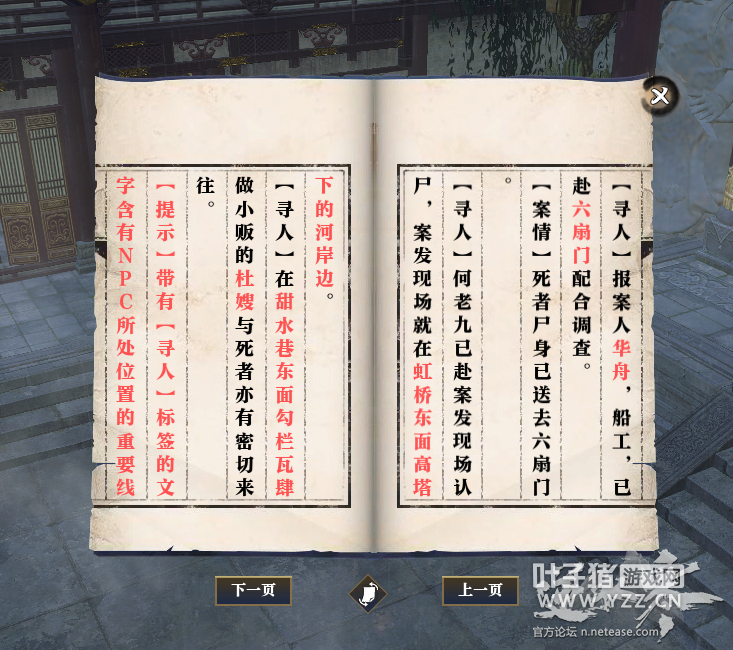 【寻人】报案人华舟，船工，已
赴六扇门配合调查。
【案情】死者尸身已送去六扇门
。
【寻人】何老九已赴案发现场认
尸，案发现场就在虹桥东面高塔
下的河岸边。
【寻人】在甜水巷东面勾栏瓦肆
做小贩的杜嫂与死者亦有密切来
往。
【提示】带有【寻人】标签的文
字含有NPC所处位置的重要线
下一页
上一页
叶子猪游戏网
WWW.YZZ.CN
官方论坛 n.netease.com